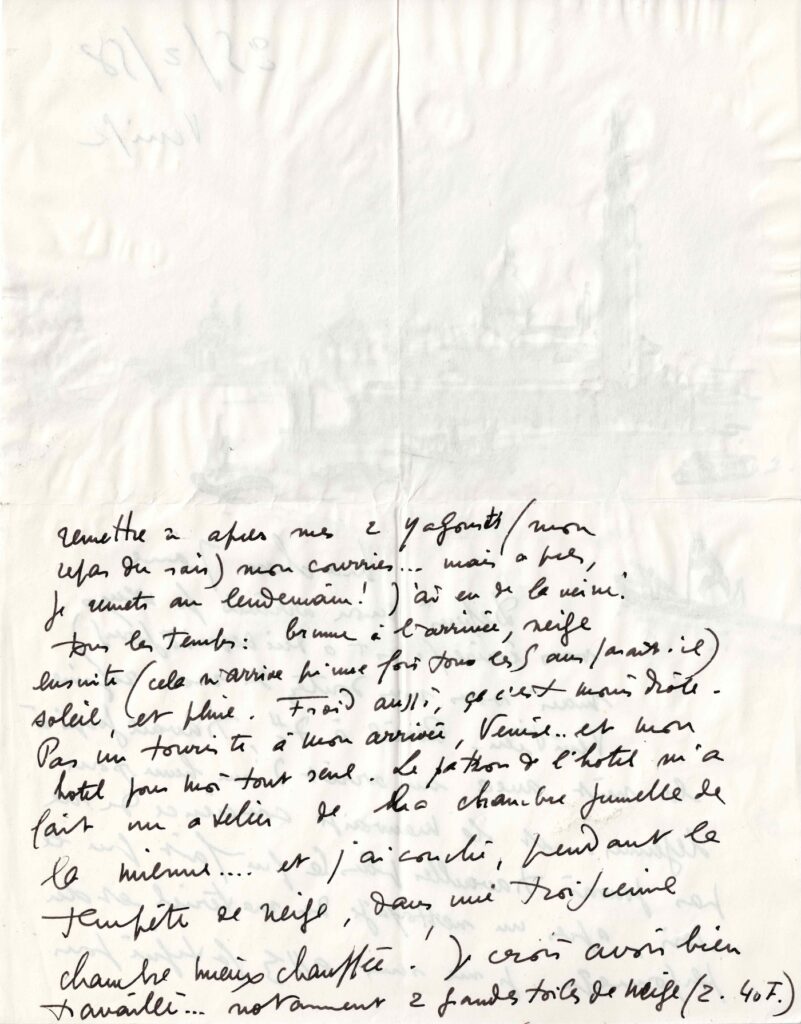 remettre à après mes 2 yagourts (mon
repas du soir) mon courrier... mais après,
je remets au lendemain! J'ai eu de la veine!
tous les temps: brume à l'arrivée, neige
ensuite (cela n'arrive qu'une fois tous les 5 ans paraît-il)
soleil et pluie. Froid aussi, ça c'est moins drôle.
Pas un touriste à mon arrivée, Venise.. et mon
hotel pour moi tout seul. Le patron de l'hotel m'a
fait un atelier de la chambre jumelle de
la mienne.... et j'ai couché, pendant la
tempête de neige, dans une troisième
chambre mieux chauffée! Je crois avoir bien
travaillé... notamment 2 grandes toiles de neige (2. 40 F.)